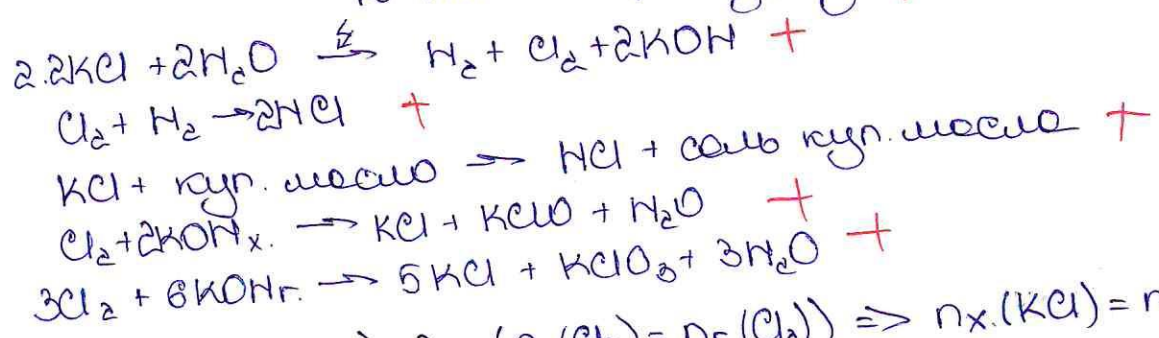 2. 2KCl + 2H₂O → H₂ + Cl₂ + 2KOH +
Cl₂ + H₂ → 2HCl +
KCl + куп. масло → HCl + соль куп. масла +
Cl₂ + 2KOH х. → KCl + KClO + H₂O +
3Cl₂ + 6KOH г. → 5KCl + KClO₃ + 3H₂O +
(Cl₂)) => nх.(KCl) = n